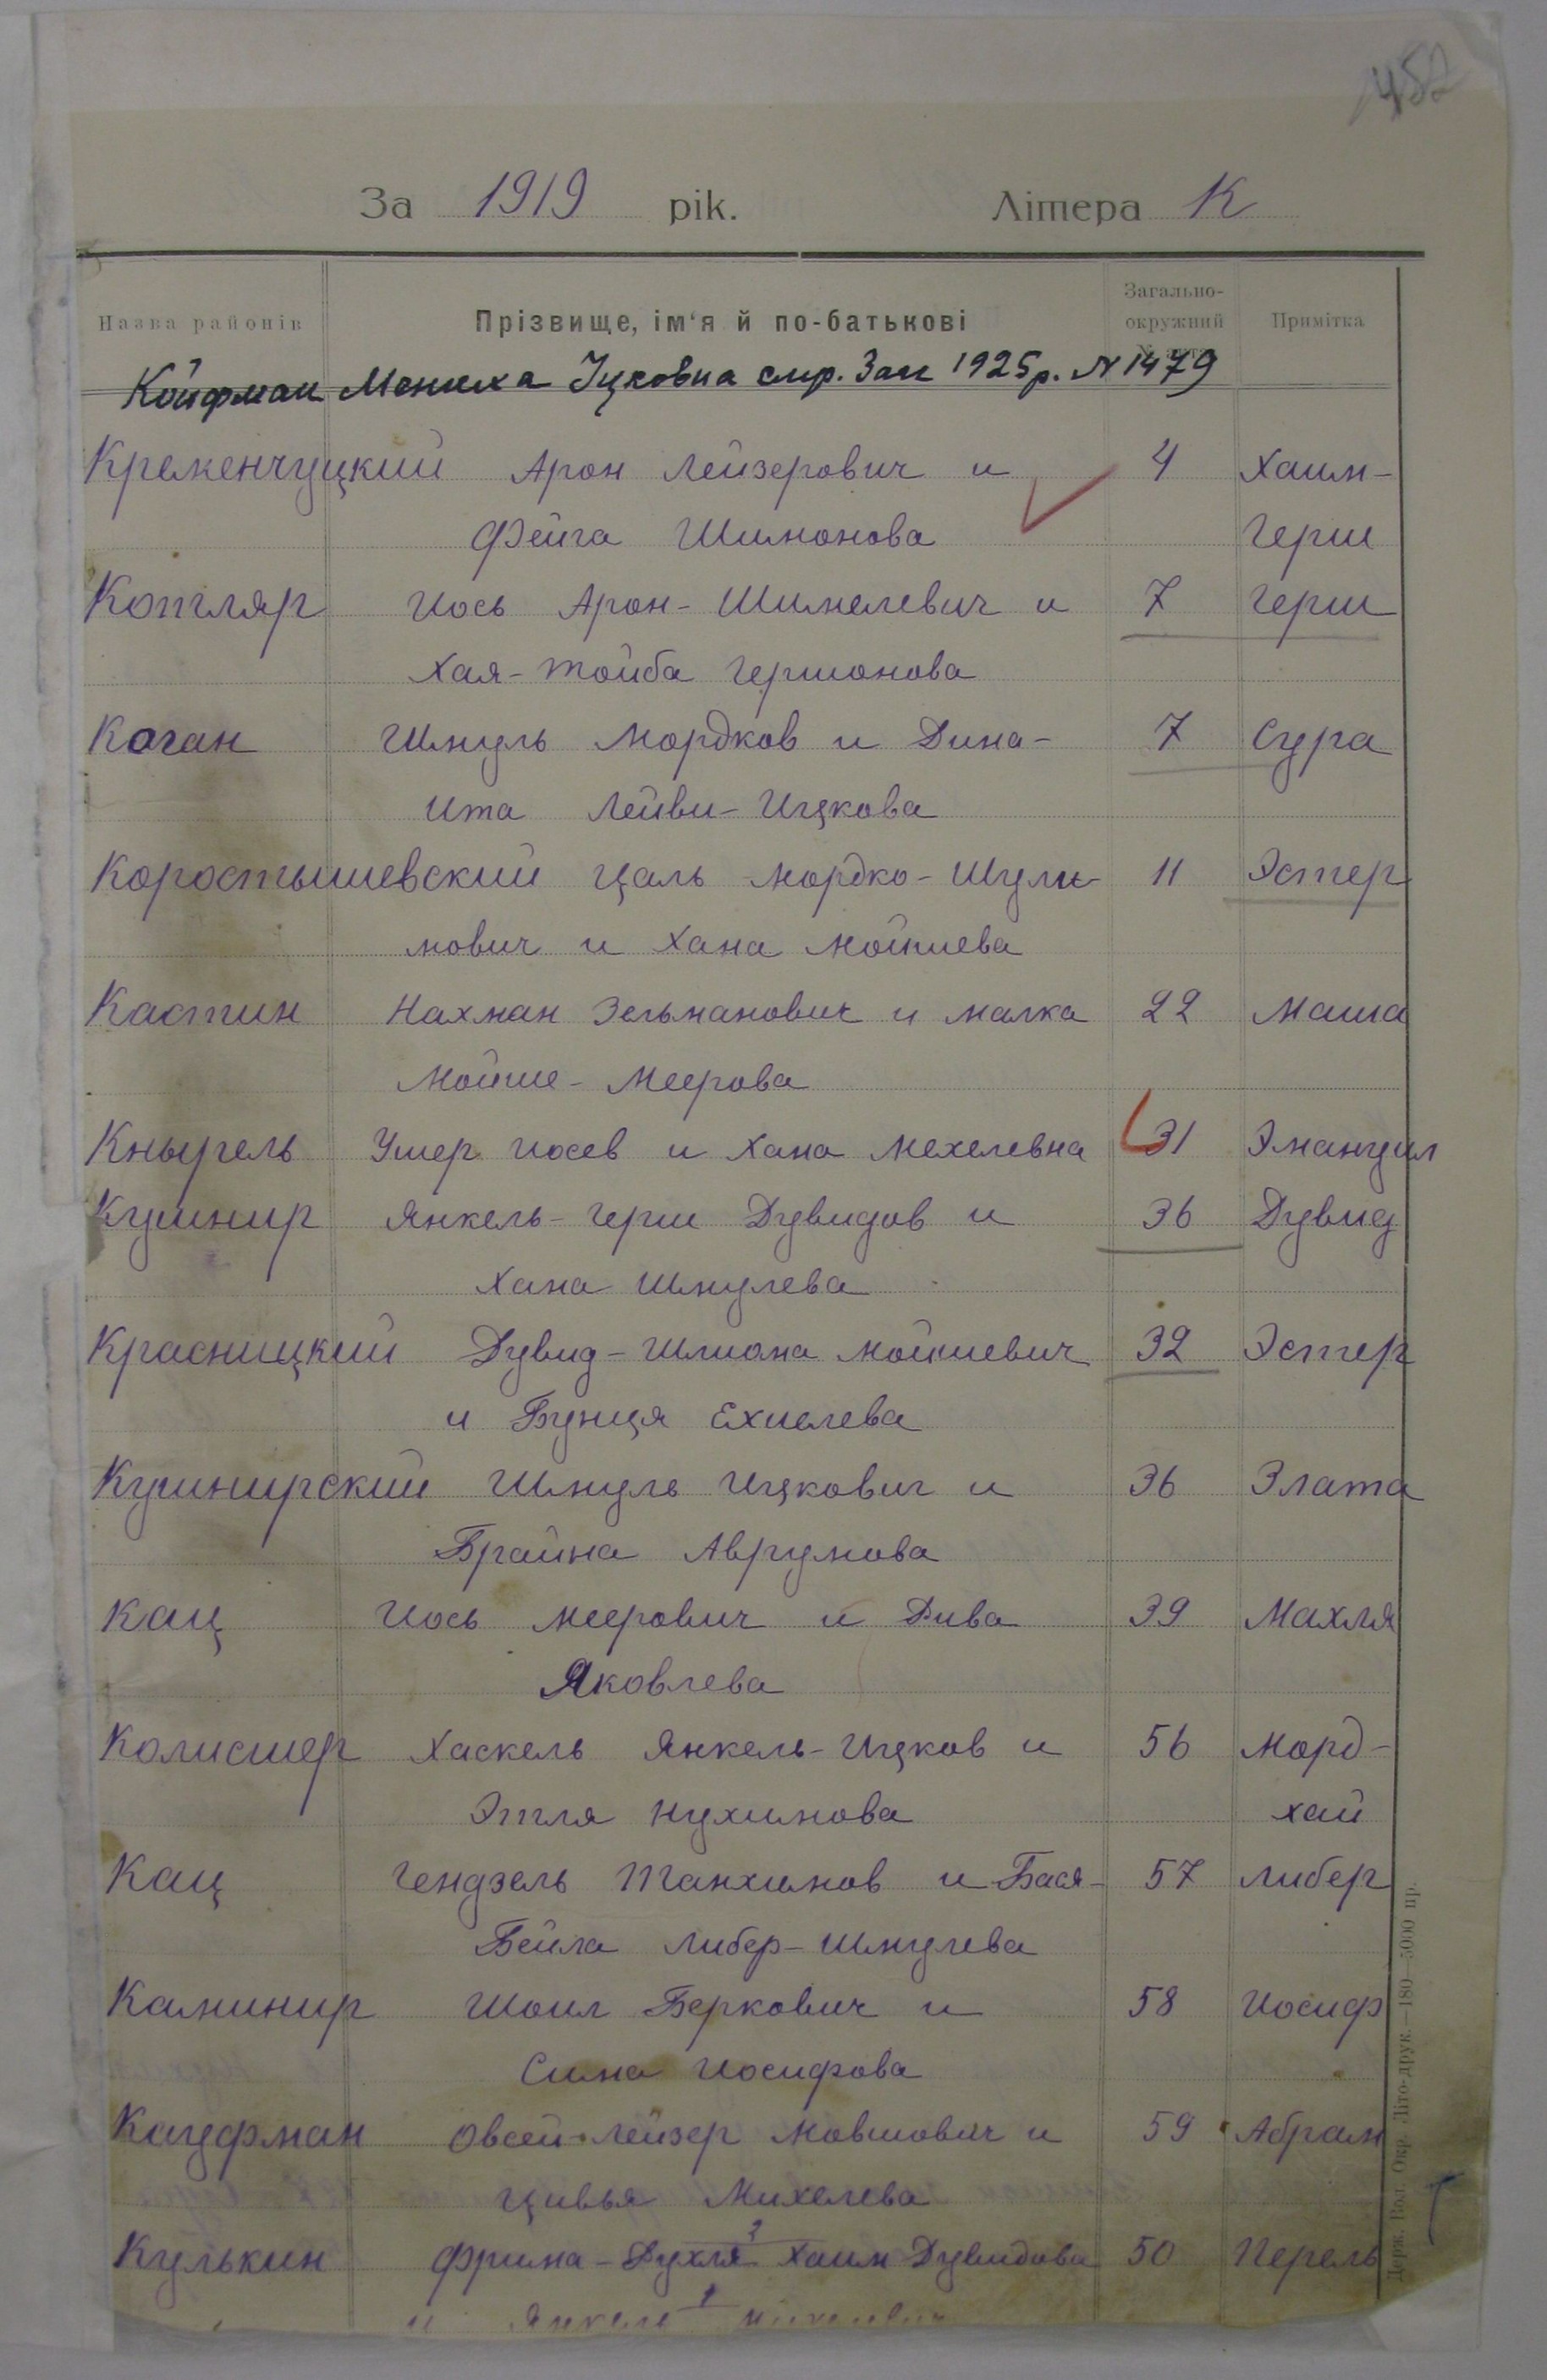 452
За 1919 рік. Літера К
Назва районів Прізвище, ім'я й по-батькові Загально-окружний Примітка
Койфман Мениха Іцковна смр. Зап 1925р. № 1479
Кременчуцкий Арон Лейзерович и 4 Хаим-
Фейга Шимонова Герш
Котляр Иось Арон-Шимелевич и 7 Герш
Хая-Тойба Гершонова
Коган Шмуль Мордков и Дина- 7 Сура
Ита Лейви-Ицкова
Коростышевский Цаль Мордко-Шули- 11 Эстер
мович и Хана Мойшева
Кастин Нахман Зельманович и Малка 22 Маша
Мойше-Меерова
Кныгель Ушер Иосев и Хана Мехелевна 31 Эмануил
Кушнир Янкель-Герш Дувидов и 36 Дувид
Хана Шмулева
Красницкий Дувид-Шлиома Мойшевич 32 Эстер
и Бунця Ехиелева
Кушнирский Шмуль Ицкович и 36 Злата
Брайна Аврумова
Кац Иось Меерович и Дива 39 Махля
Яковлева
Колисшер Хаскель Янкель-Ицков и 56 Морд-
Этля Нухимова хай
Кац Гендзель Танхимов и Бася- 57 Либер
Бейла Либер-Шмулева
Каминир Шоил Беркович и 58 Иосиф
Сима Иосифова
Кауфман Овсей-Лейзер Мовшович и 59 Абрам
Цивья Михелева
Кулькин Фрима-Рухля 2 Хаим Дувидова 50 Перель
и Янкель 1
Держ. Вол. Окр. Літо-друк.—180—5000 пр.